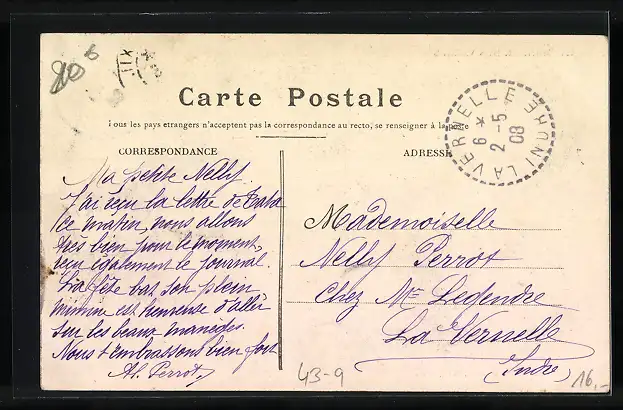 80 6
Carte Postale
Tous les pays etrangers n'acceptent pas la correspondance au recto, se renseigner à la poste
CORRESPONDANCE
ADRESSE
LA VERNELLE INDRE
6 *
2 - 5
08
Ma petite Nelly
J'ai reçu la lettre de
ce matin, nous allons
très bien pour le moment,
reçu également le journal.
La fête bat son plein
mimne est heureuse d'aller
sur les beaux maneges.
Nous t'embrassons bien fort
Al. Perrot
Mademoiselle
Nelly Perrot
Chez Mr Legendre
La Vernelle
(Indre)
43-9
16,-